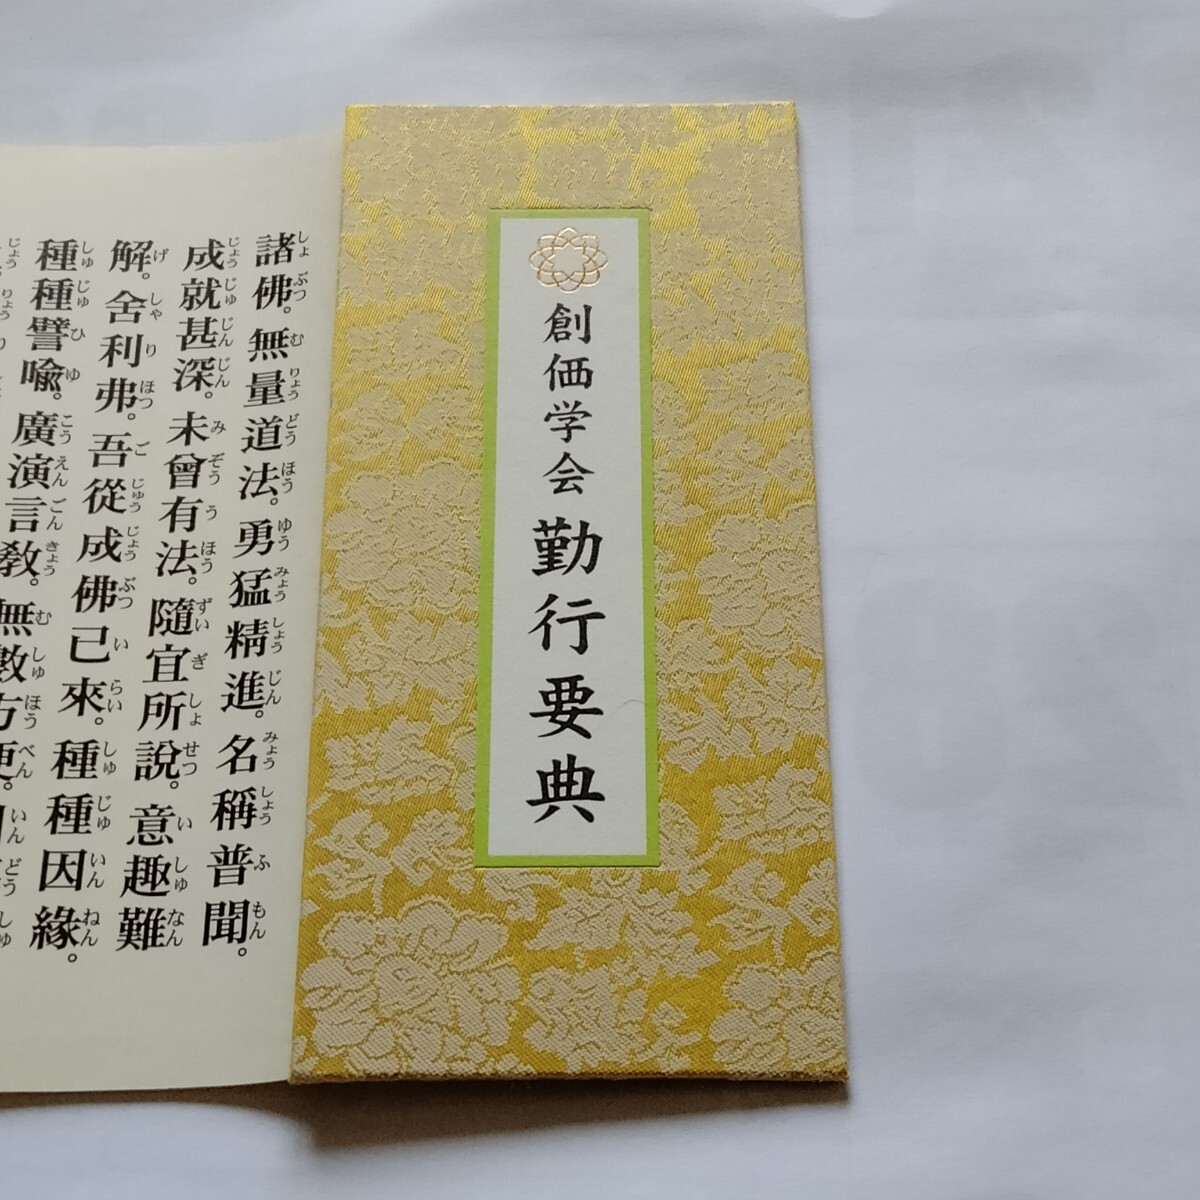 創価学会 勤行要典
諸佛。無量道法。勇猛精進。名稱普聞。
成就甚深。未曾有法。隨宜所說。意趣難
解。舍利弗。吾從成佛已來。種種因緣。
種種譬喩。廣演言敎。無數方便。